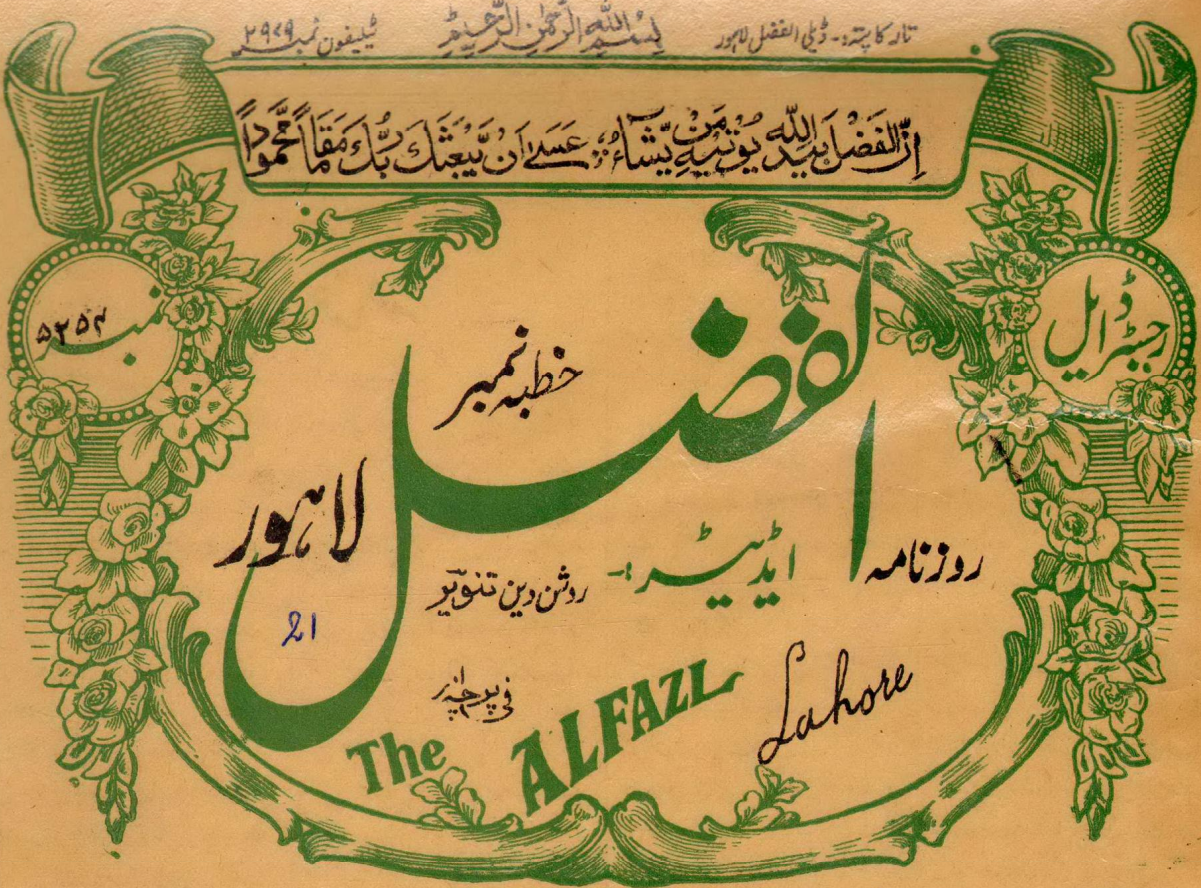 تار کا پتہ:- ڈیلی الفضل لاہور بِسْمِ اللّٰہِ الرَّحْمٰنِ الرَّحِیْمِ ٹیلیفون نمبر ۲۹۷۹
اِنَّ الْفَضْلَ بِیَدِ اللّٰہِ یُؤْتِیْہِ مَنْ یَّشَآءُ عَسٰۤی اَنْ یَّبْعَثَكَ رَبُّكَ مَقَامًا مَّحْمُوْدًا
رجسٹرڈ ایل
نمبر ۵۲۵۴
روزنامہ
الفضل
خطبہ نمبر
لاہور
ایڈیٹر:- روشن دین تنویر
21
فی پرچہ
The ALFAZL
Lahore